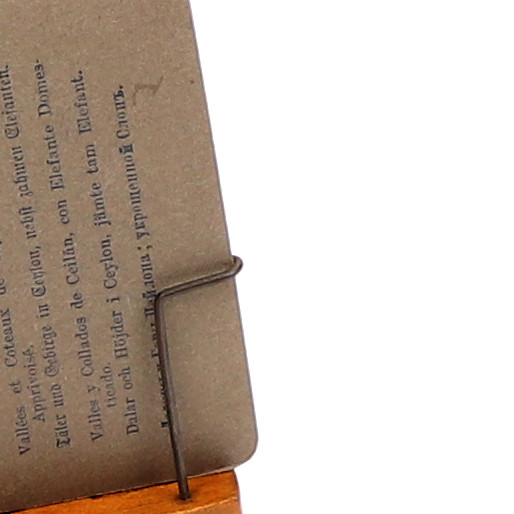 Vallées et Coteaux de
Apprivoisé.
Täler und Gebirge in Ceylon, nebst zahmen Elefanten.
Valles y Collados de Ceilán, con Elefante Domes-
ticado.
Dalar och Höjder i Ceylon, jämte tam Elefant.
Горы Цейлона; укрощенной Слонъ.